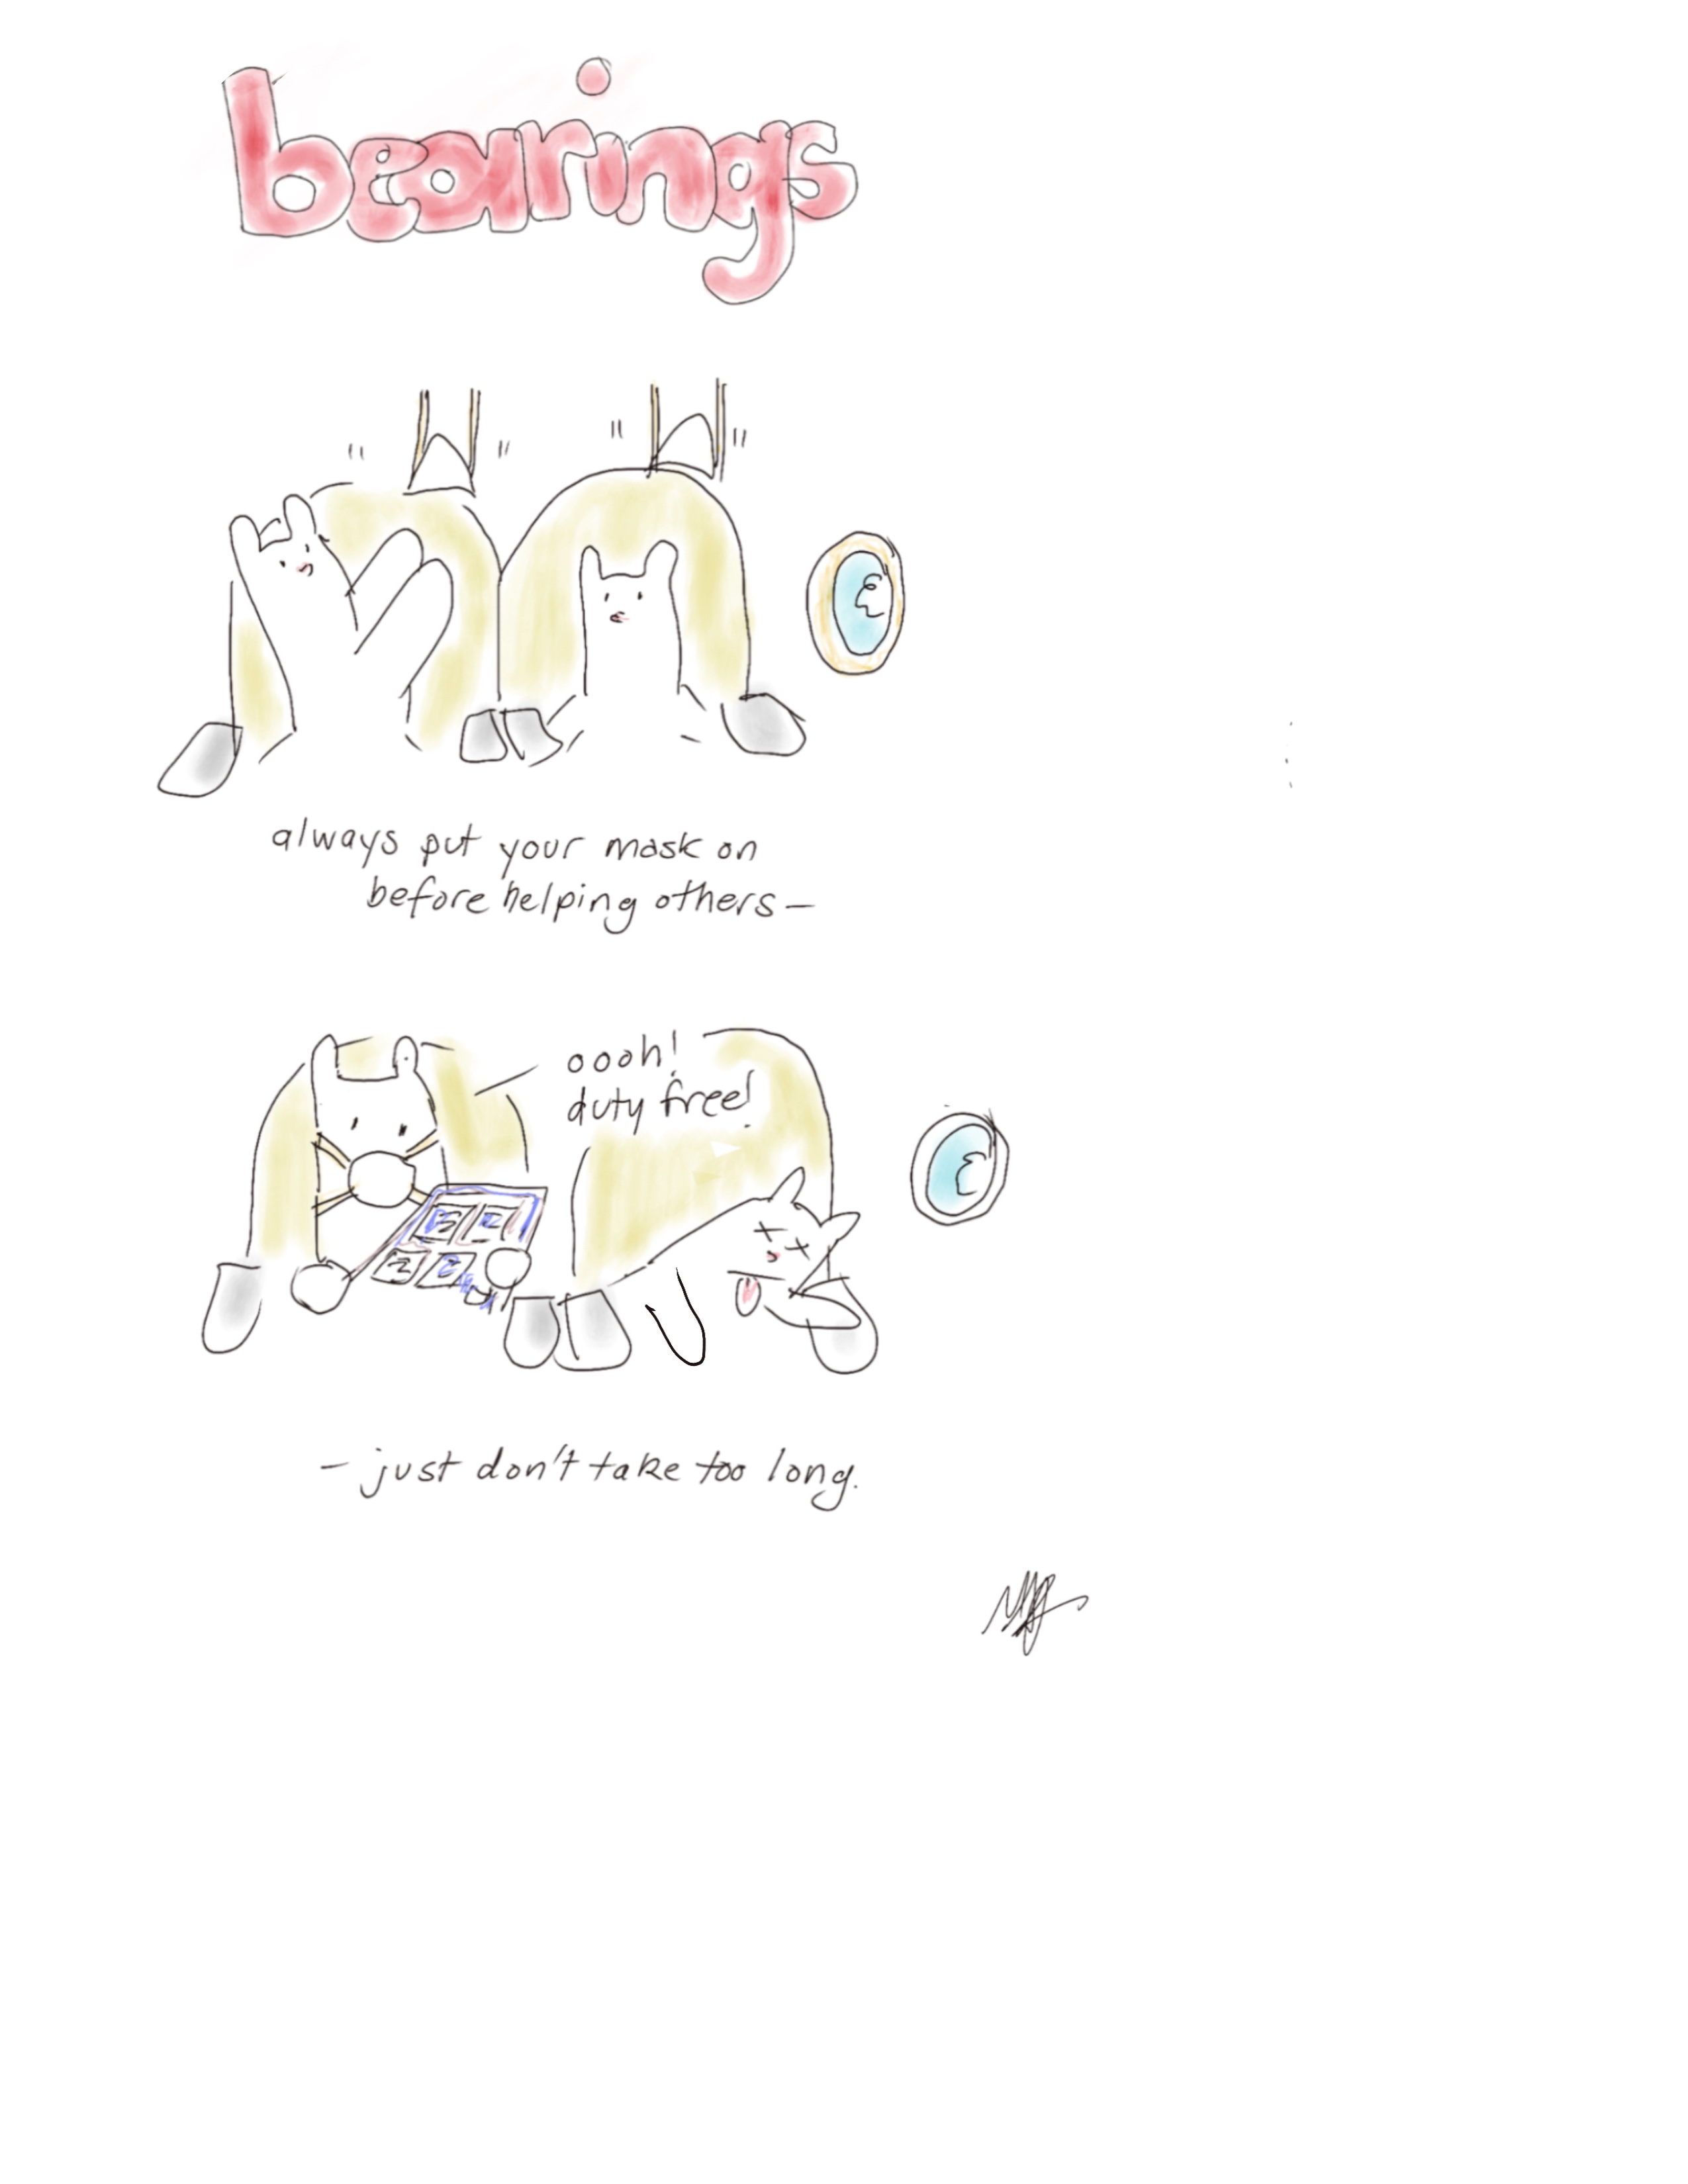 bearings
always put your mask on
before helping others—
oooh!
duty free!
— just don't take too long.